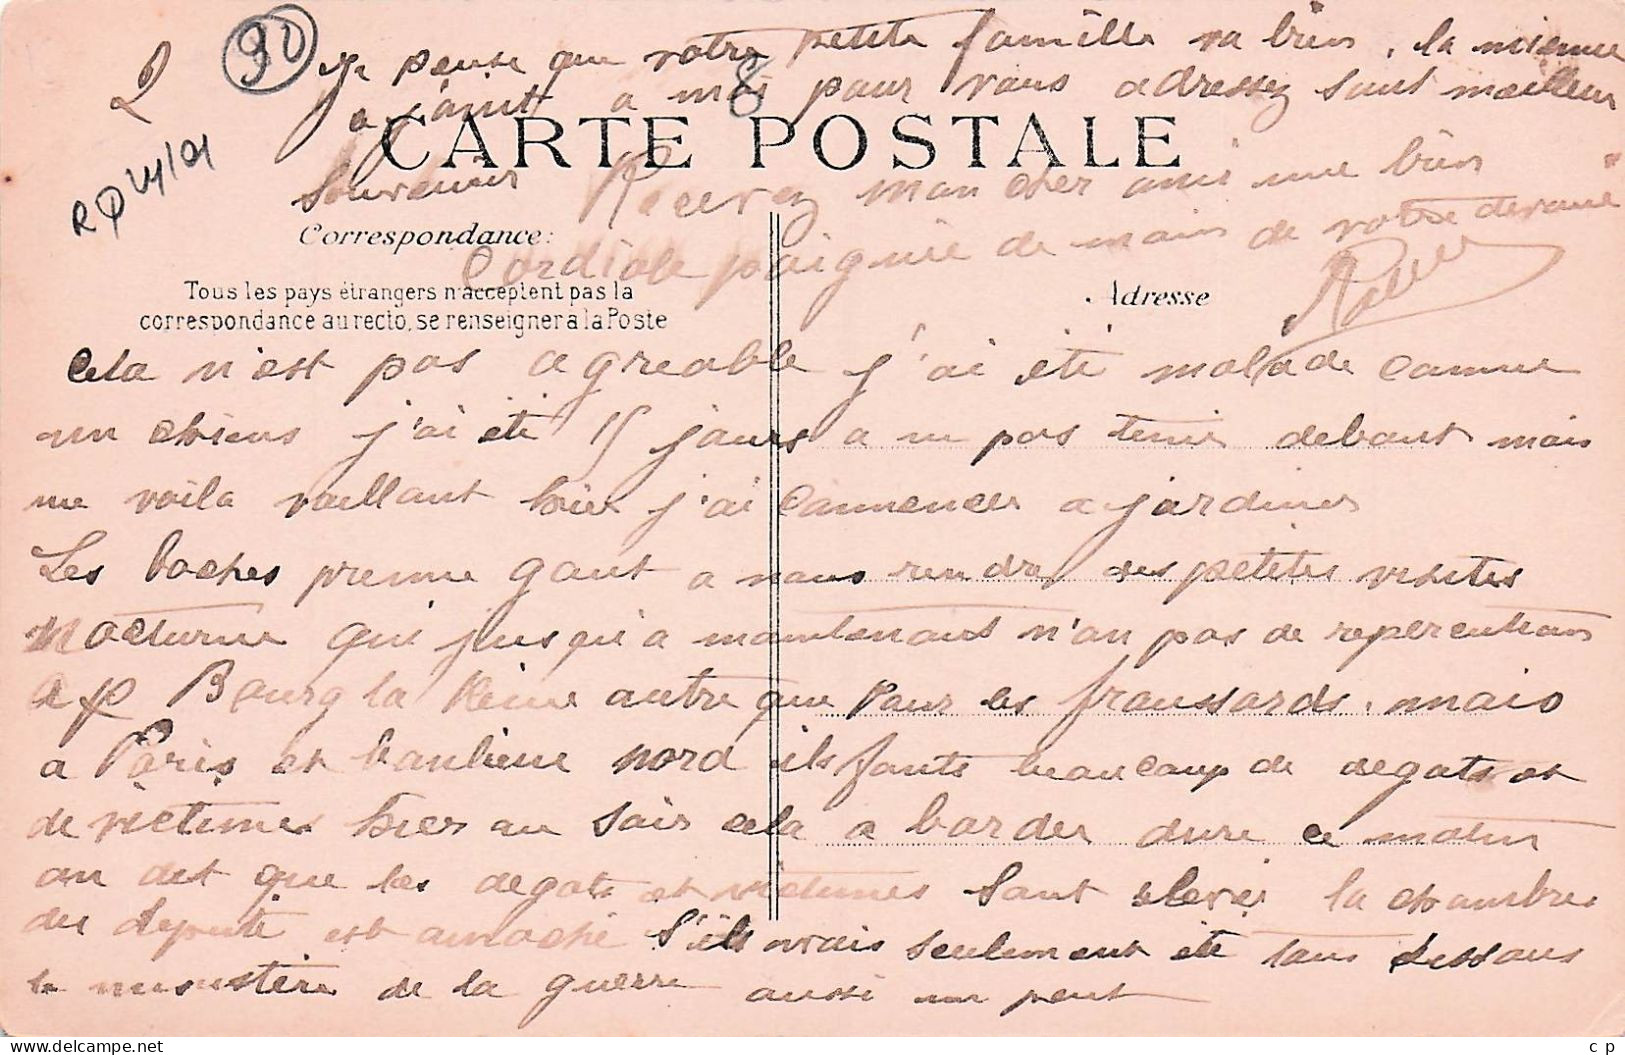 90
Je pense que votre petite famille va bien, la mienne
ce joint a moi pour vous adressez sont meilleur
8
CARTE POSTALE
Souvenir Recevez mon cher ami une bien
Correspondance:
Cordiale poignie de main de votre devoué
Tous les pays étrangers n'acceptent pas la
correspondance au recto, se renseigner à la Poste
Adresse
Cela n'est pas agreable j'ai été malade comme
un chiens j'ai été 15 jours a ne pas tenir debout mais
me voila vaillant hier j'ai commencer a jardiner
Les boches prenne gout a nous rendre des petites visites
nocturne qui jusqu'a maintenant n'on pas de repercutions
a Bourg la Reine autre que pour les froussards. mais
a Paris et banlieue nord ils fonts beaucoup de degats et
de victimes hier au soir cela a barder dure ce matin
on dit que les degats et victimes sont elevés la chambre
des deputé est amoché s'ils avais seulement été sans dessous
le ministère de la guerre aussi un peut
cp